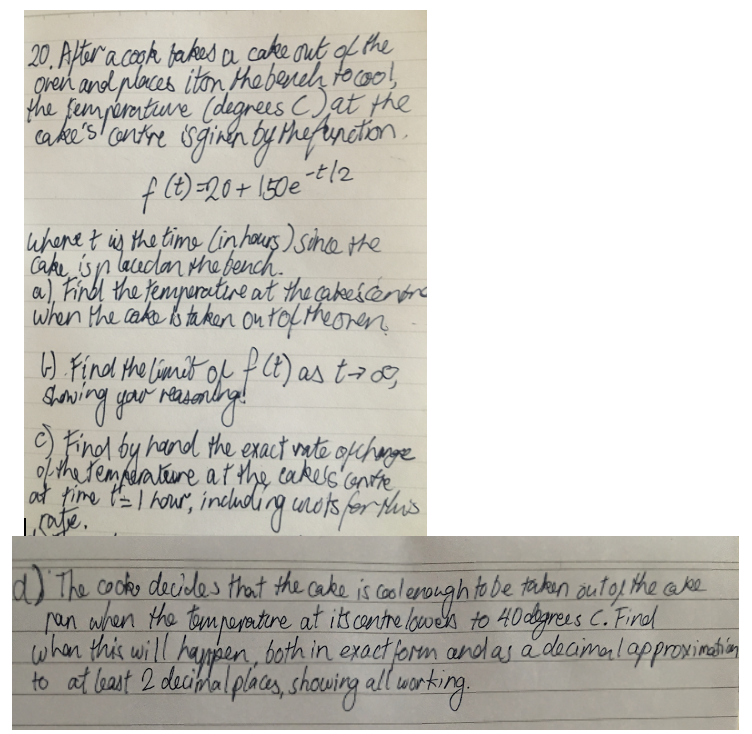 20. After a cook takes a cake out of the
oven and places it on the bench to cool,
the temperature (degrees C) at the
cake's centre is given by the function.
f(t)=20+150e^-t/2
where t is the time (in hours) since the
cake is placed on the bench.
a) Find the temperature at the cake's centre
when the cake is taken out of the oven.
b) Find the limit of f(t) as t→∞,
showing your reasoning.
c) Find by hand the exact rate of change
of the temperature at the cake's centre
at time t=1 hour, including units for this
rate.
d) The cook decides that the cake is cool enough to be taken out of the cake
pan when the temperature at its centre lowers to 40 degrees C. Find
when this will happen, both in exact form and as a decimal approximation
to at least 2 decimal places, showing all working.